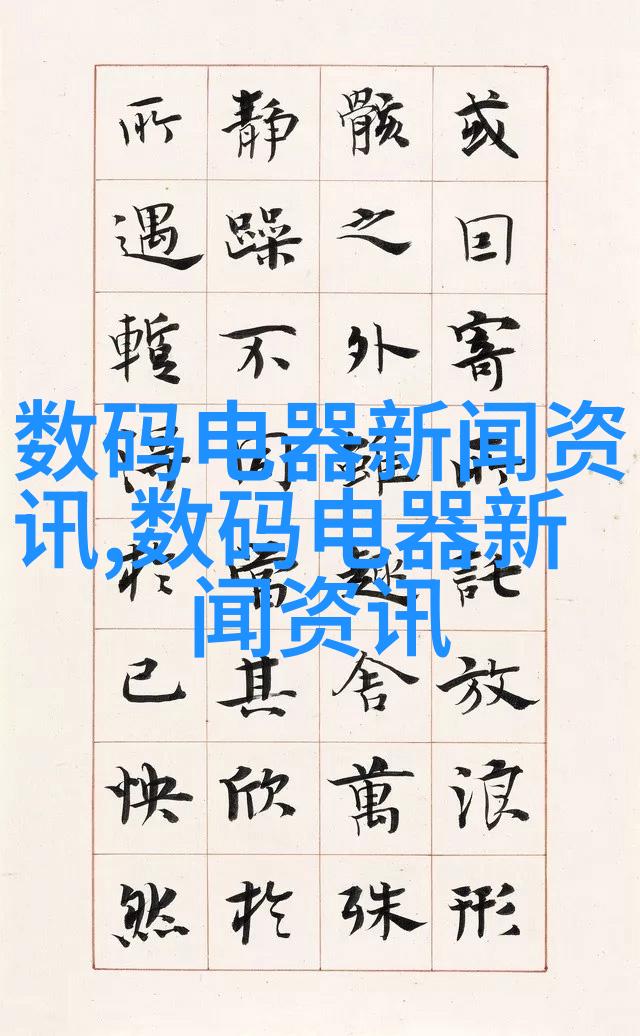 或因寄所託放浪形
骸之外雖趣舍萬殊
靜躁不同當其欣於
所遇暫得於己怏然
数码电器新闻资
讯,数码电器新
闻资讯